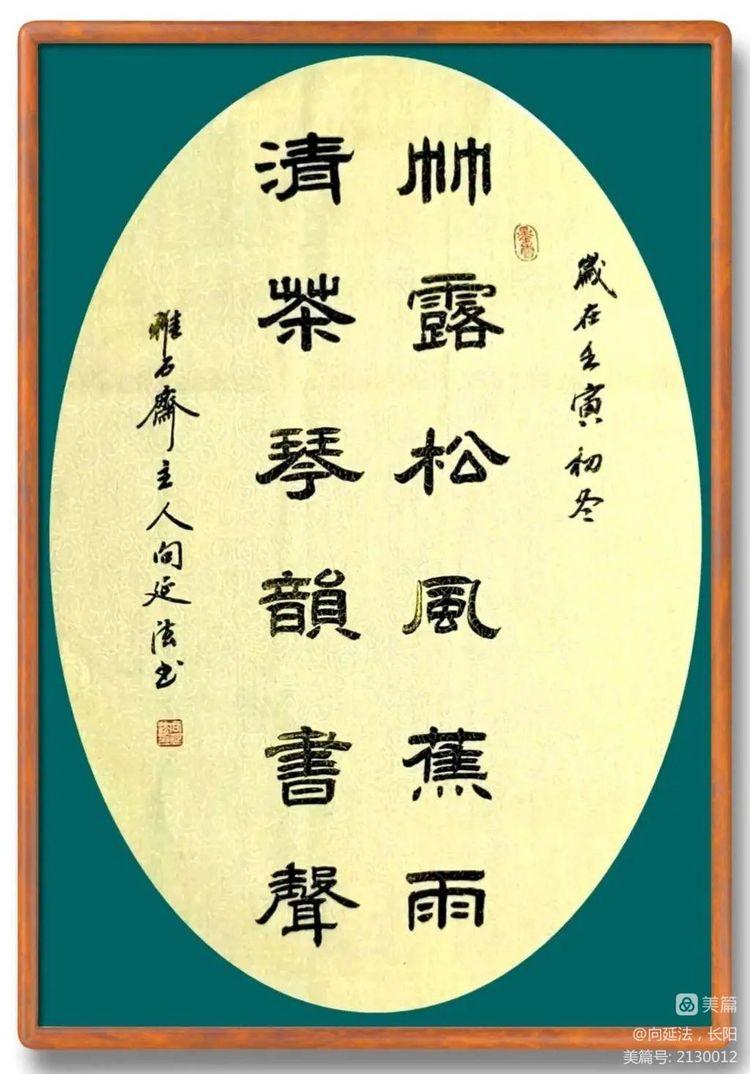 歲在壬寅初冬
竹露松風蕉雨
清茶琴韻書聲
雅石齋主人向延法书
美篇
@向延法，长阳
美篇号: 2130012